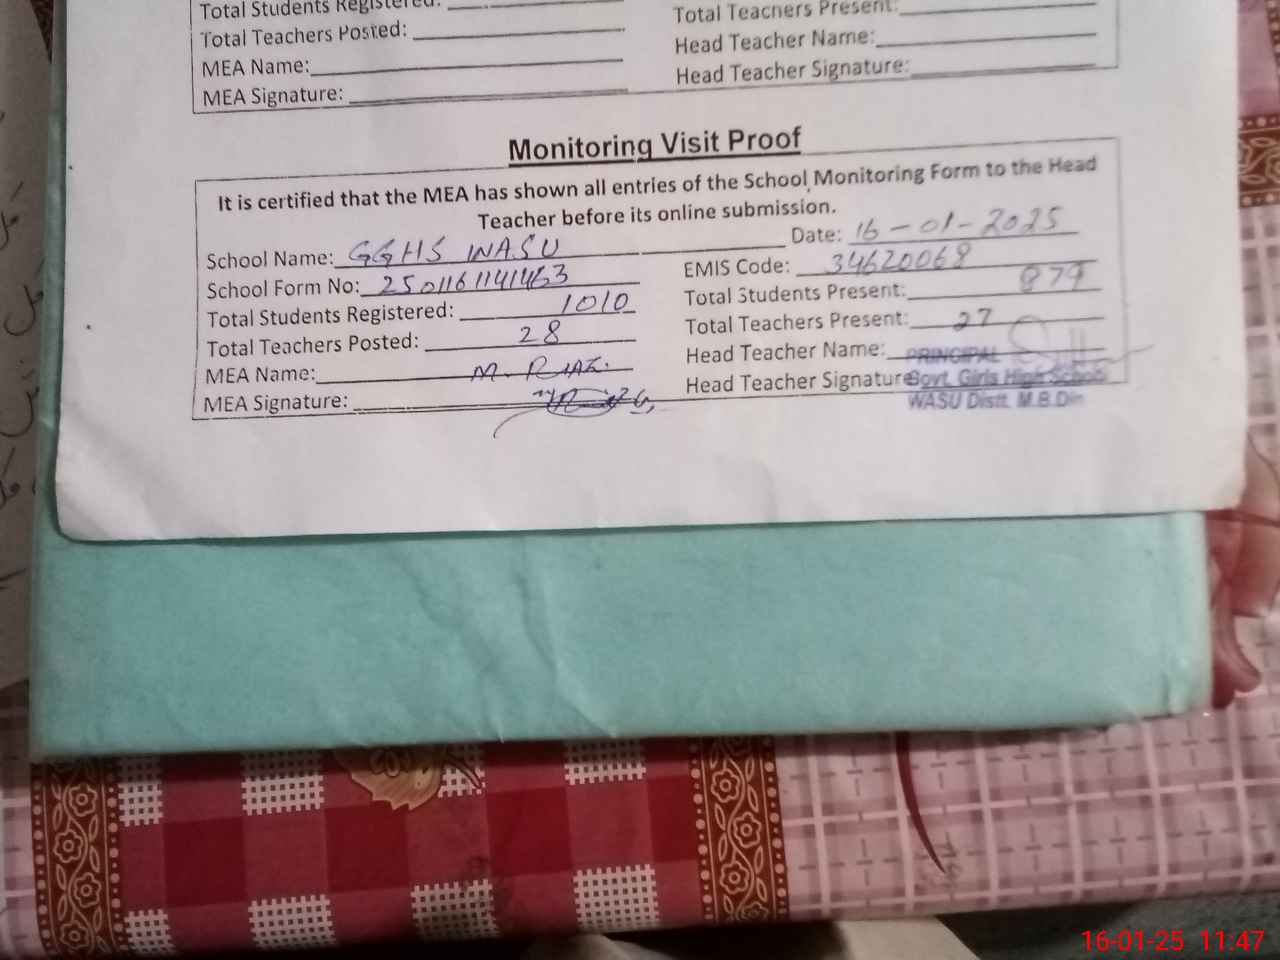 Total Students Registered: Total Teachers Present:
Total Teachers Posted: Head Teacher Name:
MEA Name: Head Teacher Signature:
MEA Signature:
Monitoring Visit Proof
It is certified that the MEA has shown all entries of the School Monitoring Form to the Head
Teacher before its online submission.
School Name: GGHS WASU Date: 16-01-2025
School Form No: EMIS Code: 34620068
Total Students Registered: 1010 Total Students Present: 879
Total Teachers Posted: 28 Total Teachers Present: 27
MEA Name: M. Riaz. Head Teacher Name:
MEA Signature: Head Teacher Signature:
PRINCIPAL
Govt. Girls High School
WASU Distt. M.B.Din
16-01-25 11:47